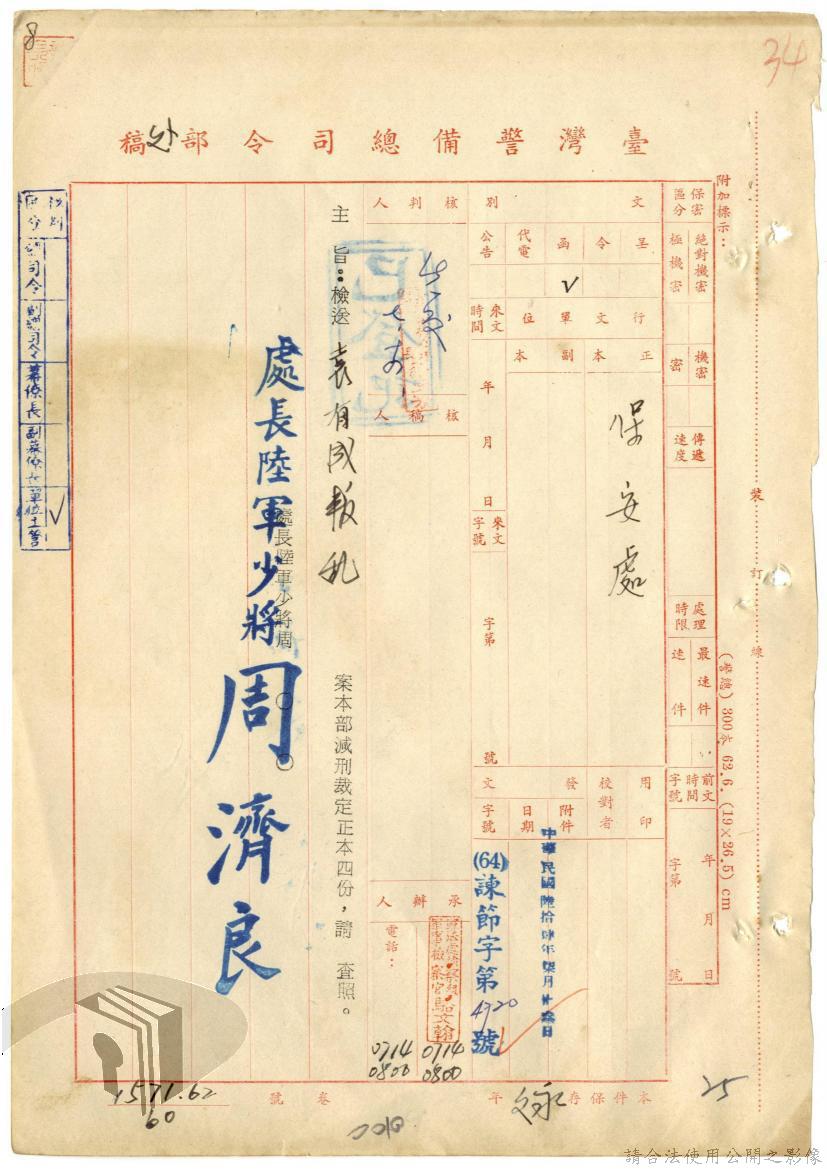 8
34
臺灣警備總司令部处稿
附加標示：
保密區分
絕對機密
極機密
機密
密
傳遞速度
處理時限
最速件
速件
前文時間字號
年月日
字第號
文別
呈
令
函
代電
公告
V
行文單位
正本
副本
保安處
來文時間
年月日
來文字號
字第號
用印
校對者
發文
附件
日期
字號
中華民國陸拾肆年柒月
(64)諫節字第4720號
核判人
核稿人
承辦人
電話：
馬文翰
0714 0800
0714 0800
主旨：檢送袁有成叛乱案本部減刑裁定正本四份，請查照。
處長陸軍少將周○○
處長陸軍少將周濟良
副總司令
幕僚長
副幕僚長
單位主管
V
裝訂線
300本 62.6. (19×26.5) cm
本件保存永久年
卷號
1571.62
60
25
請合法使用公開之影像